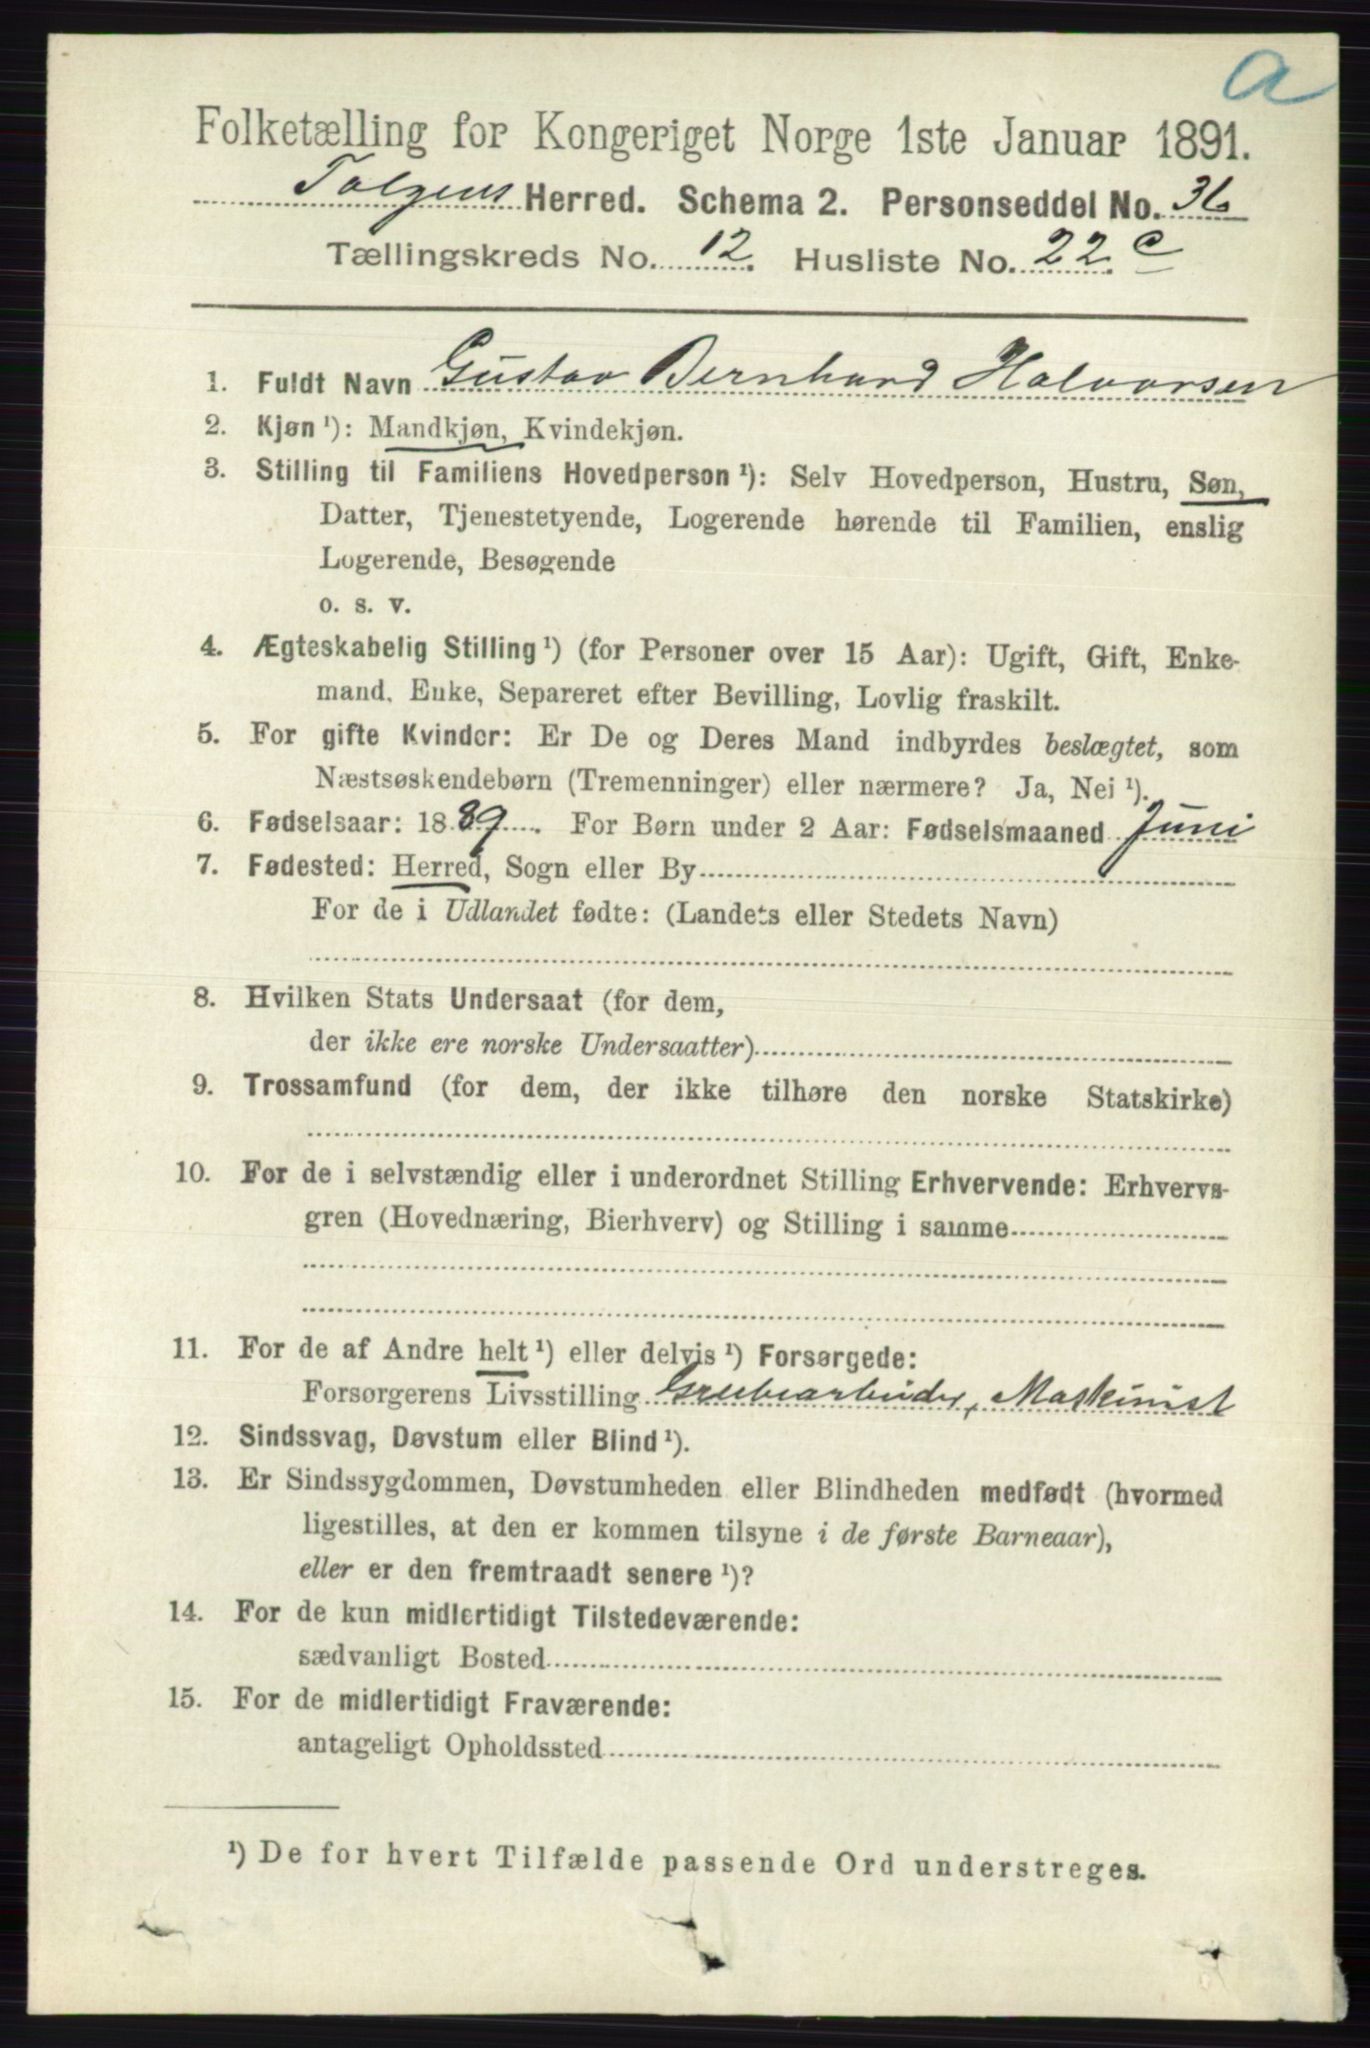 a
Folketælling for Kongeriget Norge 1ste Januar 1891.
Tolgens Herred. Schema 2. Personseddel No. 36
Tællingskreds No. 12. Husliste No. 22 c
1. Fuldt Navn Gustav Bernhard Halvorsen
2. Kjøn ¹): Mandkjøn, Kvindekjøn.
3. Stilling til Familiens Hovedperson ¹): Selv Hovedperson, Hustru, Søn,
Datter, Tjenestetyende, Logerende hørende til Familien, enslig
Logerende, Besøgende
o. s. v.
4. Ægteskabelig Stilling ¹) (for Personer over 15 Aar): Ugift, Gift, Enke-
mand, Enke, Separeret efter Bevilling, Lovlig fraskilt.
5. For gifte Kvinder: Er De og Deres Mand indbyrdes beslægtet, som
Næstsøskendebørn (Tremenninger) eller nærmere? Ja, Nei ¹).
6. Fødselsaar: 1889. For Børn under 2 Aar: Fødselsmaaned Juni
7. Fødested: Herred, Sogn eller By
For de i Udlandet fødte: (Landets eller Stedets Navn)
8. Hvilken Stats Undersaat (for dem,
der ikke ere norske Undersaatter)
9. Trossamfund (for dem, der ikke tilhøre den norske Statskirke)
10. For de i selvstændig eller i underordnet Stilling Erhvervende: Erhvervs-
gren (Hovednæring, Bierhverv) og Stilling i samme
11. For de af Andre helt ¹) eller delvis ¹) Forsørgede:
Forsørgerens Livsstilling Grubearbeider, Maskinist
12. Sindssvag, Døvstum eller Blind ¹).
13. Er Sindssygdommen, Døvstumheden eller Blindheden medfødt (hvormed
ligestilles, at den er kommen tilsyne i de første Barneaar),
eller er den fremtraadt senere ¹)?
14. For de kun midlertidigt Tilstedeværende:
sædvanligt Bosted
15. For de midlertidigt Fraværende:
antageligt Opholdssted
¹) De for hvert Tilfælde passende Ord understreges.